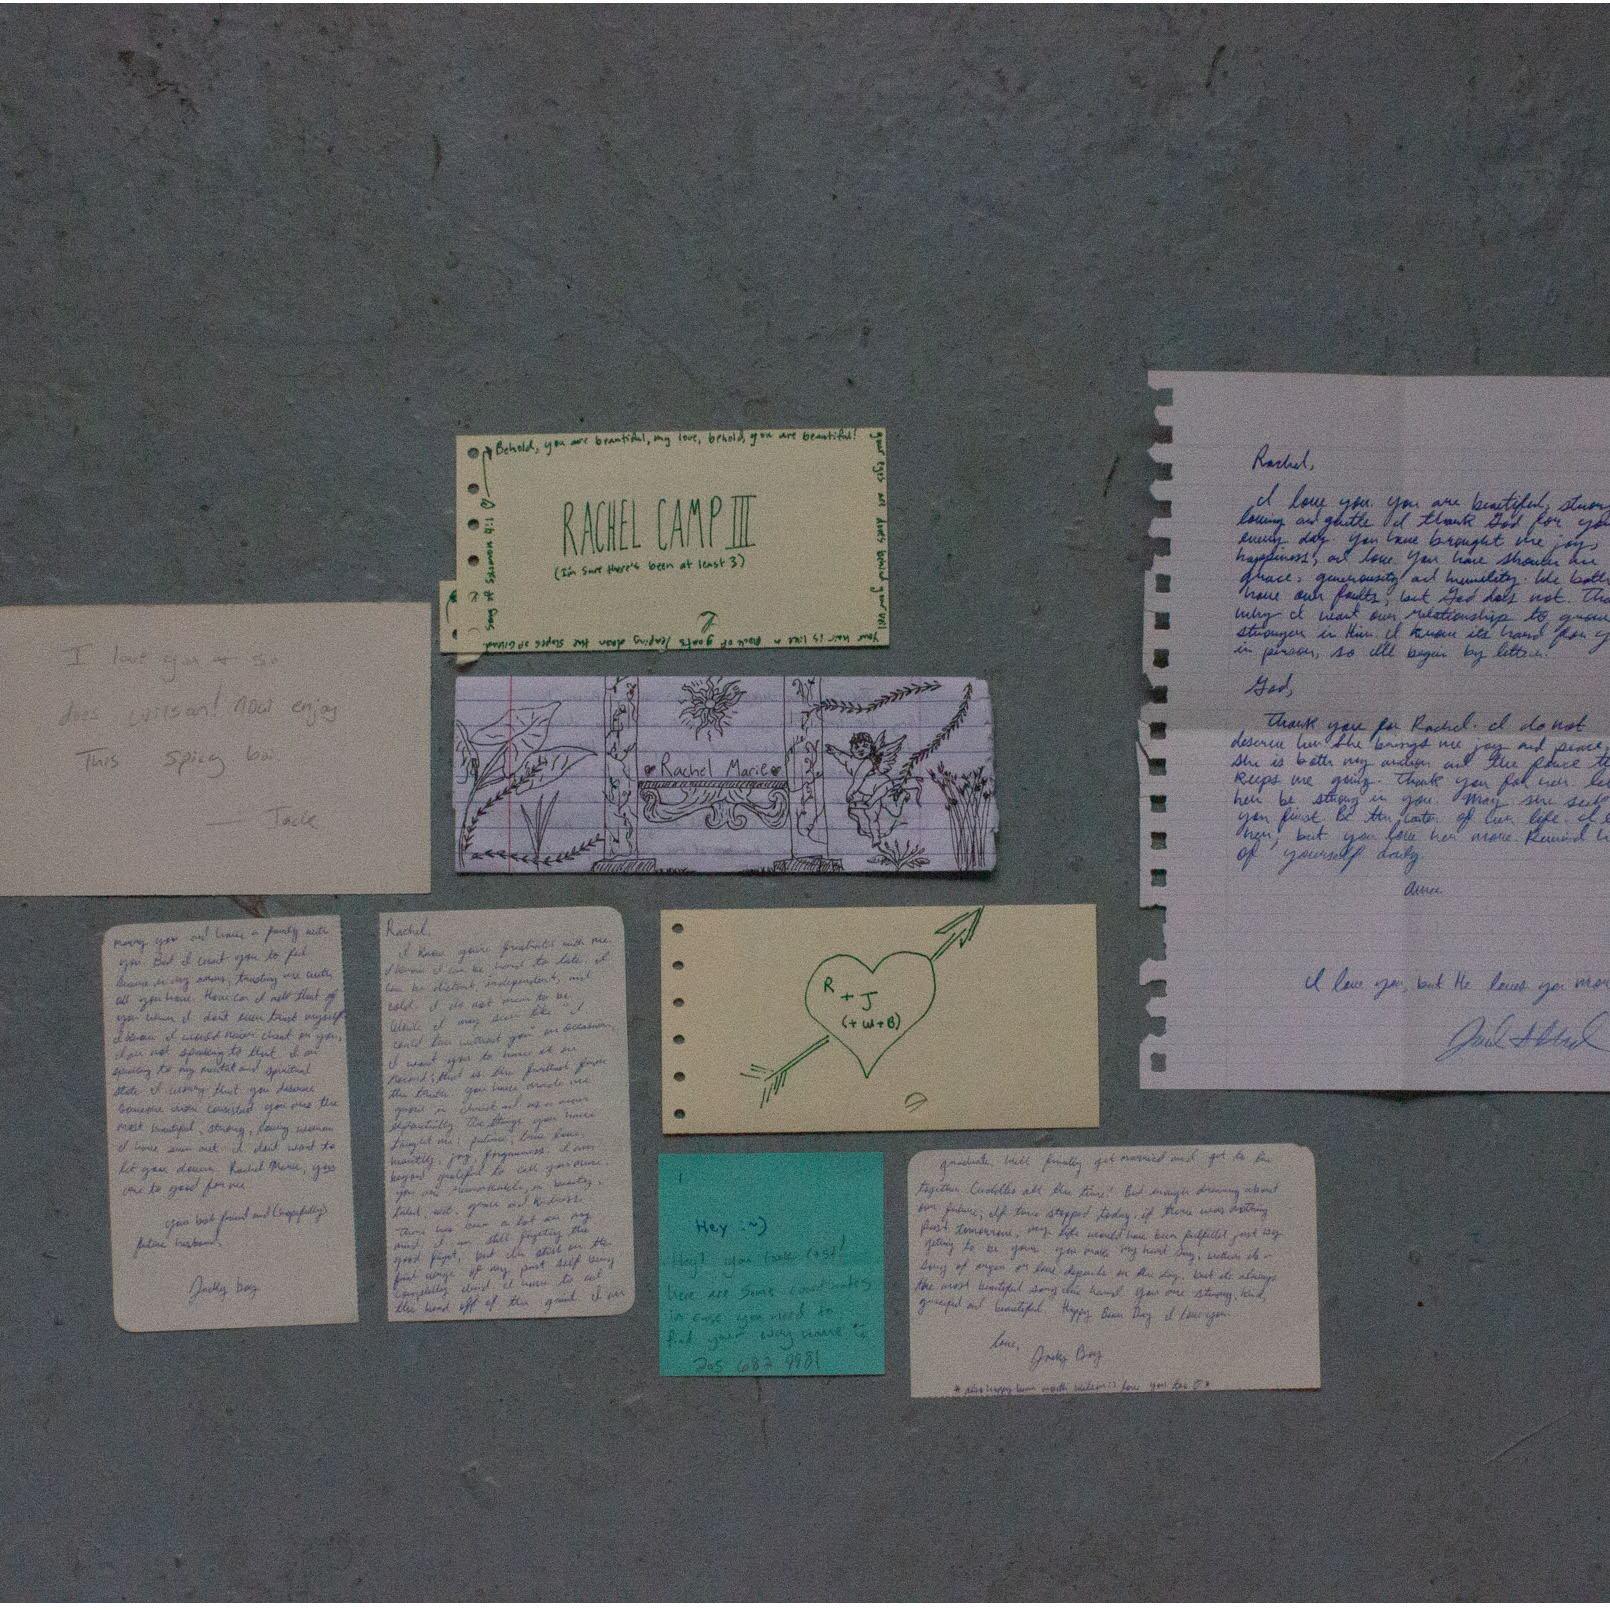 Behold, you are beautiful, my love, behold, you are beautiful!
your eyes are doves behind your veil
Your hair is like a flock of goats leaping down the slopes of Gilead
Song of Solomon 4:1
RACHEL CAMP III
(I'm sure there's been at least 3)
I love you & so
does Wilson! Now enjoy
This spicy boi
— Jack
Rachel Marie
Rachel,
I love you. You are beautiful, strong
loving and gentle. I thank God for you
every day. You have brought me joy,
happiness, and love. You have shown me
grace, generousity and humility. We both
have our faults, but God does not. That
why I want our relationship to grow
stronger in Him. I know its hard for
in person, so I'll begin by letter.
God,
Thank you for Rachel. I do not
deserve her. She brings me joy and peace,
she is both my and the peace
keeps me going. Thank you for her
her be strong in you. May she seek
you first be the center of her life. I
her, but you love her more. Remind
of yourself daily
Amen
I love you, but He loves you more
marry you and have a family with
you. But I want you to feel
secure in my arms, trusting me with
all you have. How can I ask that of
you when I don't even trust myself
I know I would never cheat on you,
I am not speaking to that. I am
speaking to my mental and spiritual
state. I worry that you deserve
someone more consistent. You are the
most beautiful, strong, loving woman
I have ever met. I don't want to
let you down. Rachel Marie, you're
too good for me
your best friend and (hopefully)
future husband,
Jacky boy
Rachel,
I know you're frustrated with me.
I know I can be hard to
can be distant, independent, and
cold. I do not mean to be.
While I may seem like "I
could live without you" on occasion,
I want you to have it on
record, that is the furthest from
the truth. You have made me
grow in Christ and as a man
The things you have
taught me: patience, true love,
humility, joy, forgiveness. I am
beyond grateful to call you mine.
You are in beauty,
talent, wit, grace and kindness.
There has been a lot on my
mind. I am still fighting the
good fight, but I'm still on the
of my past self being
completely dead. I have to cut
the head off of the giant. I am
R
+ J
(+ W + B)
Hey :~)
Hey! You look lost!
Here are some coordinates
in case you need to
find your way home
205 682 9981
graduate. We'll finally get married and get to be
together. Cuddles all the time! But enough dreaming about
our future; If time stopped today, if there was nothing
past tomorrow, my life would have been fulfilled just by
getting to be yours. You make my heart sing,
song of or love depends on the day, but its always
the most beautiful song I've heard. You are strong, kind,
graceful and beautiful. Happy Day. I love you.
love,
Jacky Boy